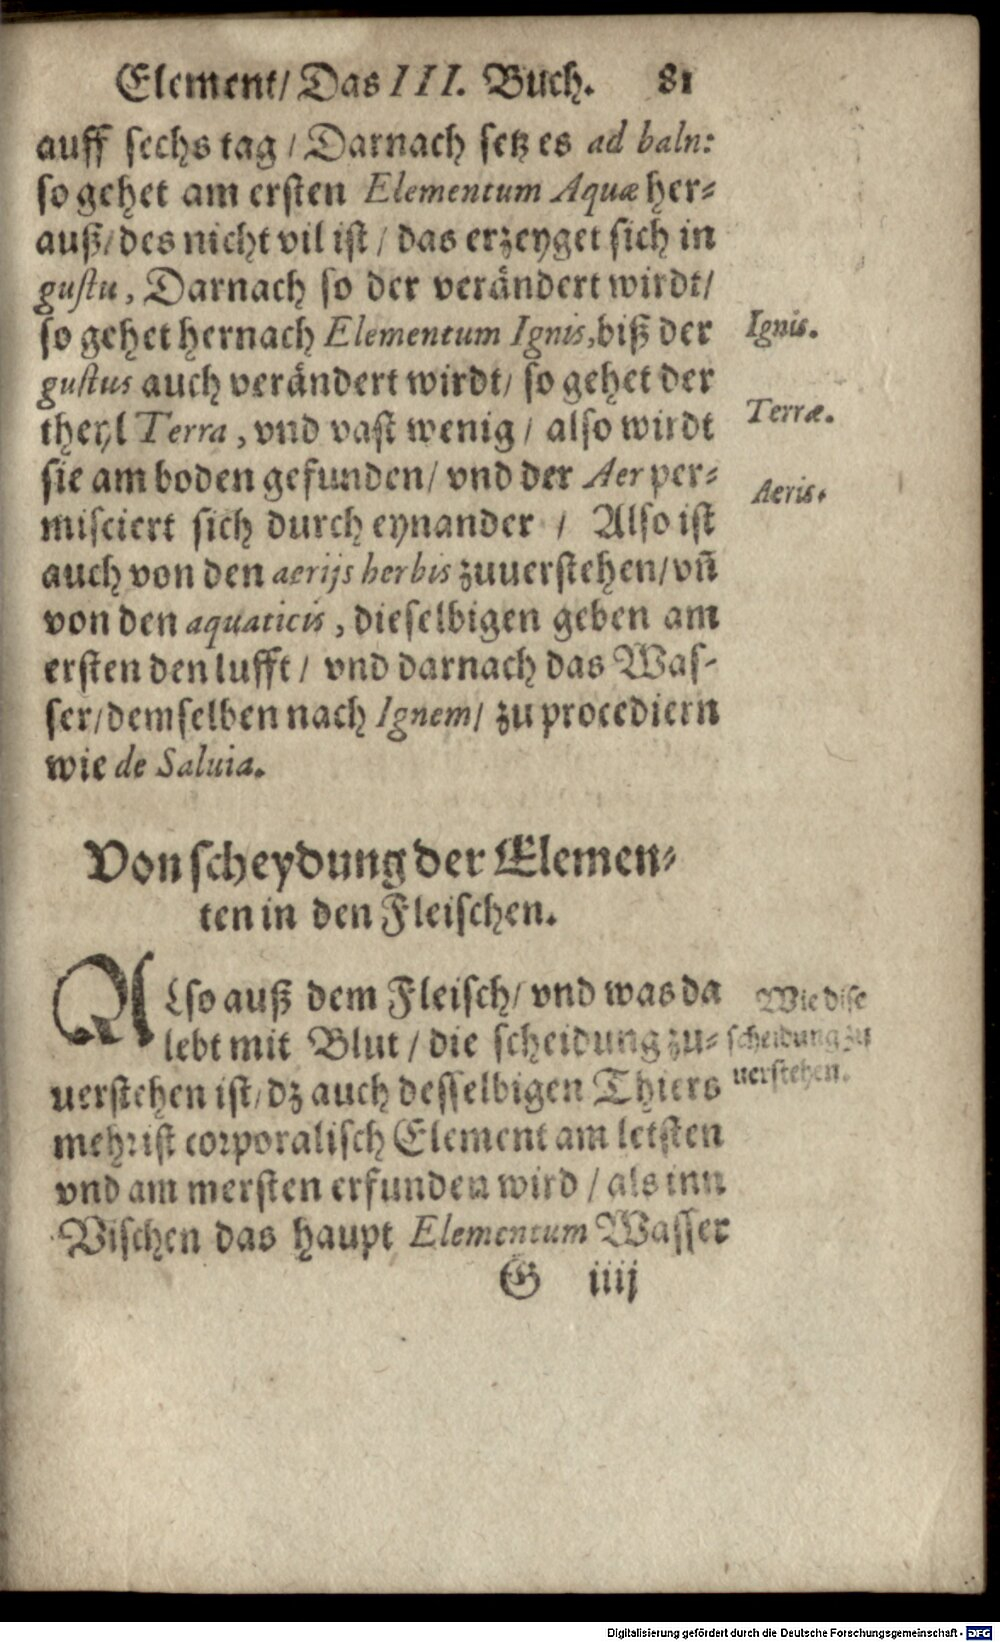 Element/ Das III. Buch. 81
auff sechs tag / Darnach setz es ad baln:
so gehet am ersten Elementum Aquæ her⸗
auß/ des nicht vil ist / das erzeyget sich in
gustu, Darnach so der verändert wirdt/
so gehet hernach Elementum Ignis, biß der
Ignis.
gustus auch verändert wirdt/ so gehet der
theyl Terra, vnd vast wenig / also wirdt
Terræ.
sie am boden gefunden/ vnd der Aer per⸗
Aeris.
misciert sich durch eynander / Also ist
auch von den aerijs herbis zuuerstehen/ vñ
von den aquaticis, dieselbigen geben am
ersten den lufft / vnd darnach das Was⸗
ser/ demselben nach Ignem/ zu procediern
wie de Saluia.
Von scheydung der Elemen⸗
ten in den Fleischen.
Also auß dem Fleisch/ vnd was da
lebt mit Blut / die scheidung zu⸗
uerstehen ist/ dz auch desselbigen Thiers
mehr ist corporalisch Element am letsten
vnd am mersten erfunden wird / als inn
Vischen das haupt Elementum Wasser
Wie dise
scheidung zu
uerstehen.
G iiij
Digitalisierung gefördert durch die Deutsche Forschungsgemeinschaft - DFG